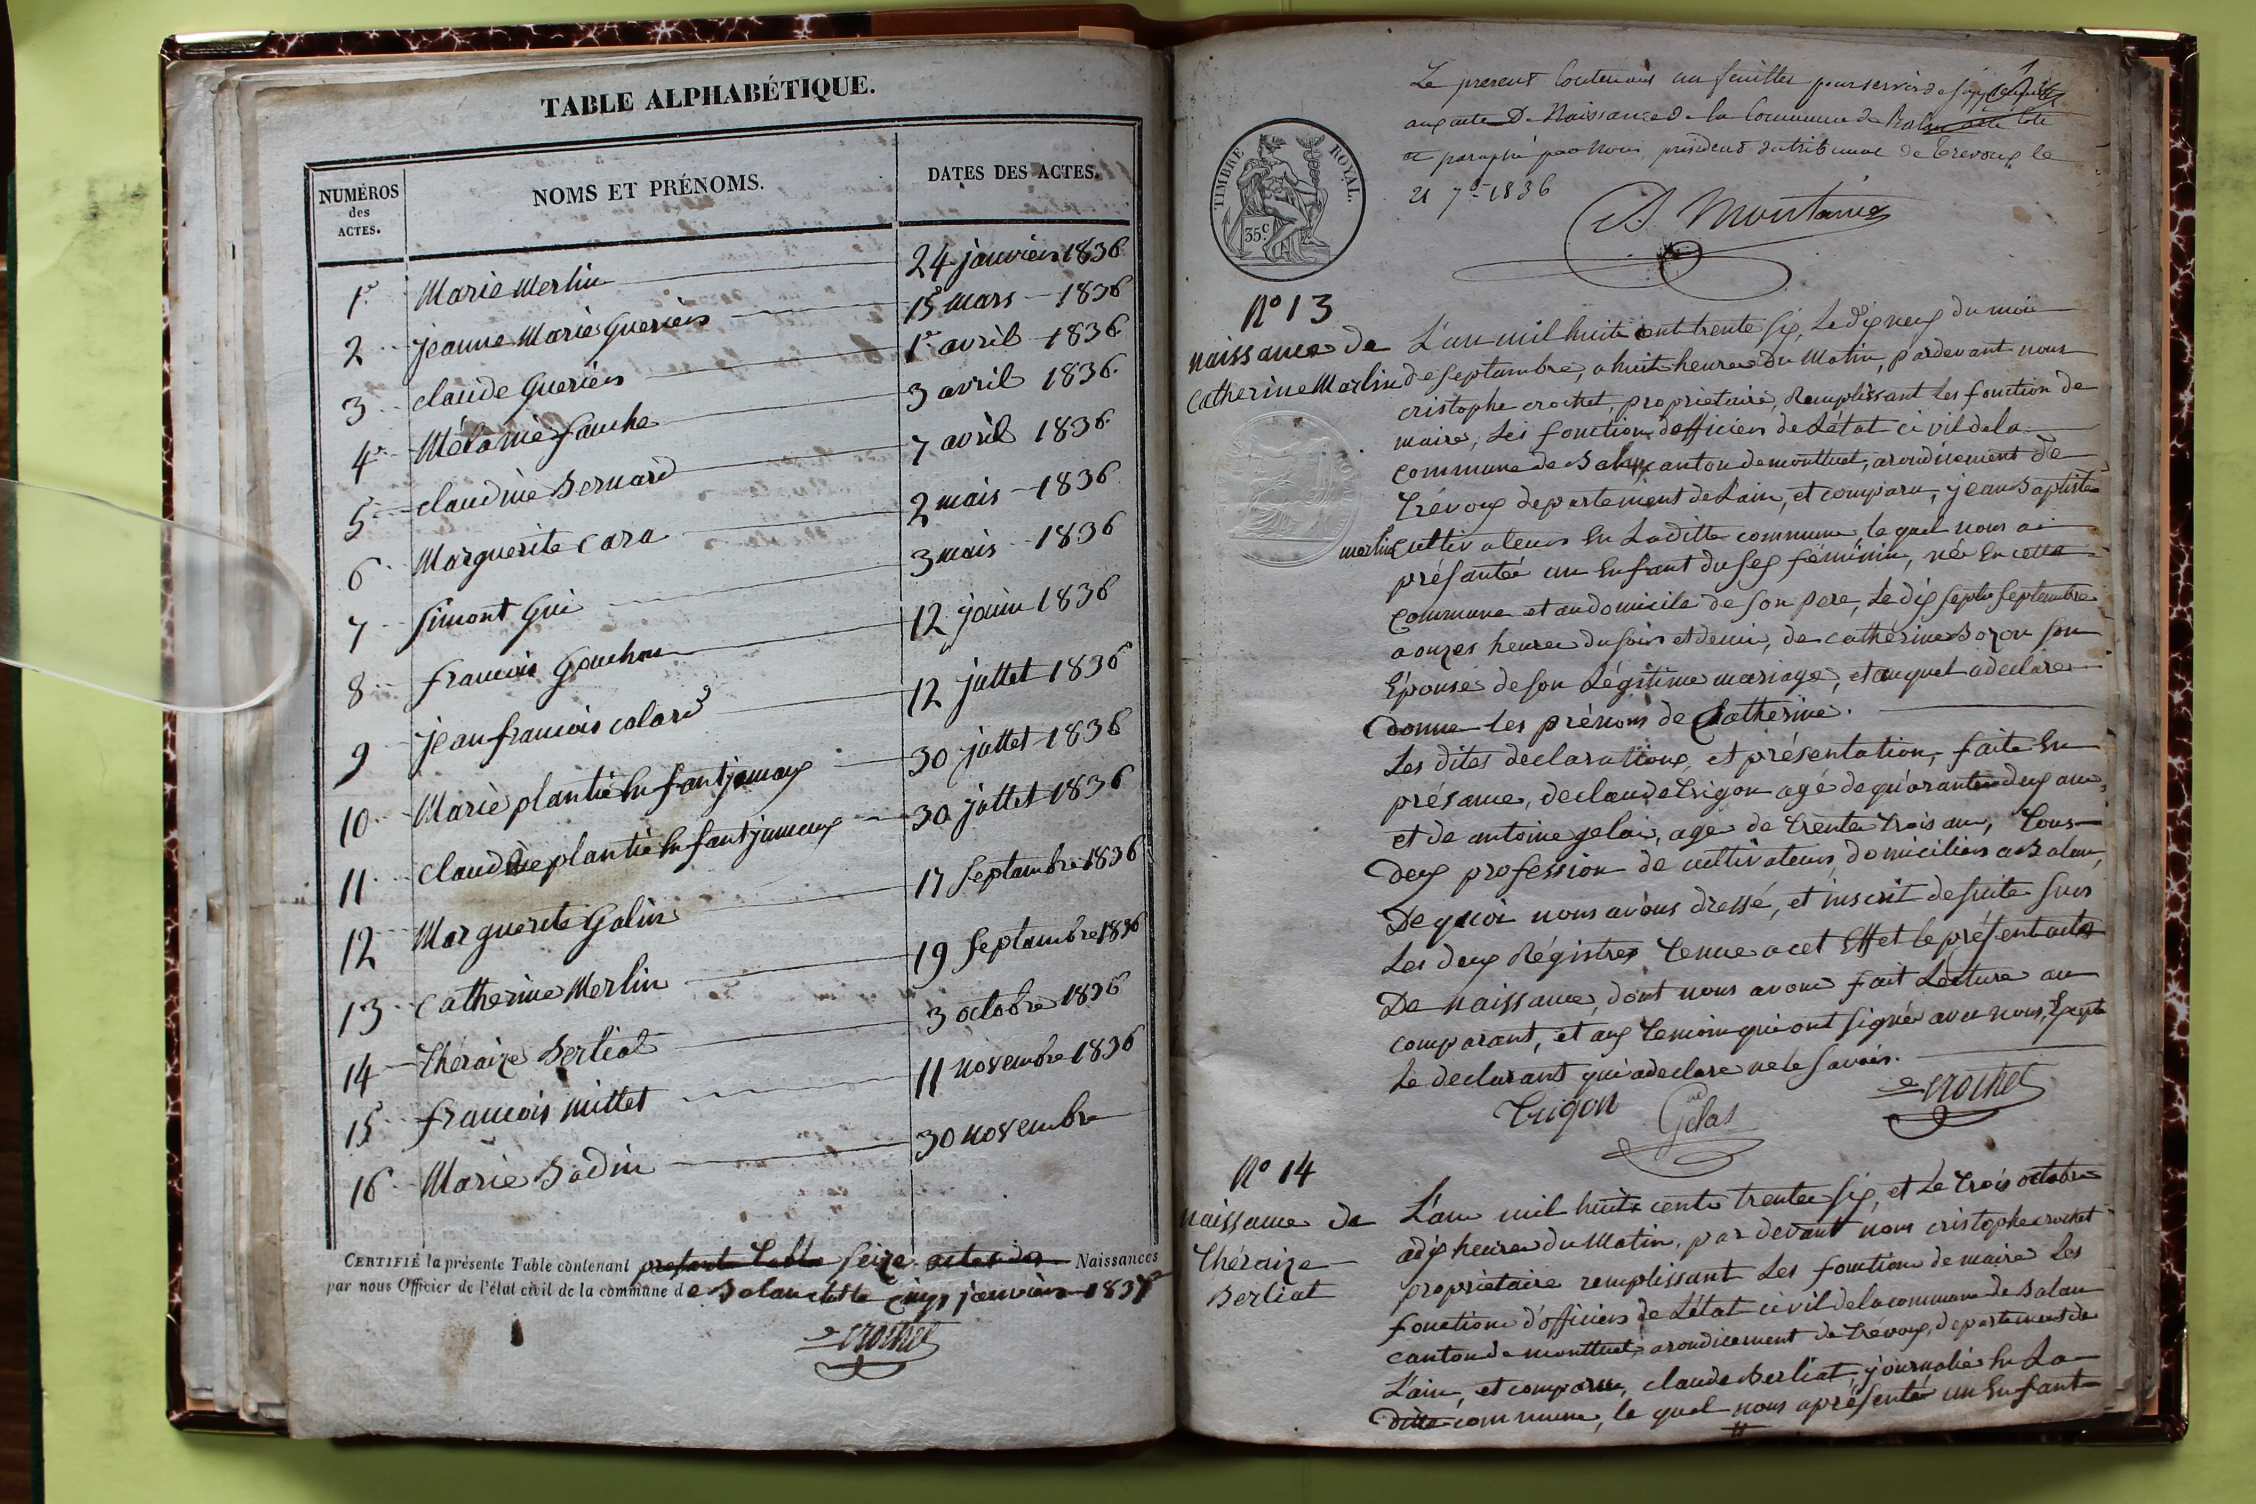 TABLE ALPHABÉTIQUE.
NUMÉROS des ACTES. NOMS ET PRÉNOMS. DATES DES ACTES.
1er Marie Merlin 24 janvier 1836
2 jeanne Marie Gueriers 15 mars 1836
3 claude Gueriers 1er avril 1836
4 Mélanie fauche 3 avril 1836
5 claudine Bernard 7 avril 1836
6 Marguerite cara 2 mais 1836
7 Simont Gui 3 mais 1836
8 francois Gouchon 12 jouin 1836
9 jean francois colard 12 jullet 1836
10 Marie plantié Enfant jumaux 30 jullet 1836
11 Claudine plantié Enfant jumeaux 30 jullet 1836
12 Marguerite Galin 17 Septambre 1836
13 Catherine Merlin 19 Septambre 1836
14 théraize Berliat 3 octobre 1836
15 francois millet 11 novembre 1836
16 Marie Badin 30 novembre
CERTIFIÉ la présente Table contenant seize actes de Naissances
par nous Officier de l'état civil de la commune de Balan cinq janvier 1837
crochet
Le present contenant un feuillet pour servir de
aux actes De Naissance de la Commune de Balan
et paraphé par Nous président du tribunal de trevoux le
21 7bre 1836
Montanier
TIMBRE ROYAL.
35 c.
No 13
naissance de
Catherine Marlin
L'an mil huit cent trente six, Le dix neuf du mois
de septambre, a huit heures du Matin, pardevant nous
cristophe crochet, propriétaire, Remplissant les fonction de
maire, Les fonction d'officiers de L'état civil de la
commune de Balan canton de montluel, arondicement de
trévoux departement de L'ain, et comparu, jean Baptiste
merlin cultivateurs En Laditte commune, le quel nous a
présantée un Enfant du sex féminin, née En cette
Commune et au domicile de son pere, Le dix sept Septembre
a onzes heures du soir et demi, de cathérine Bozon son
Épouse de son Légitime mariage, et auquel a declare
donne les prénoms de Catherine.
Les dites declarations, et présentation, faite En
présance, de claude trigon agé de quarante deux ans,
et de antoine gelas, age de trente trois ans, tous
deux profession de cultivateurs, domiciliers a Balan,
De quoi nous avons dressé, et inscrit de suite sur
Les deux Régistres tenue a cet Effet le présent acte
De naissance, dont nous avons fait Lecture au
comparant, et aux temoin qui ont signé avec nous, Excepte
Le declarant qui a declare ne le savoir.
trigon Gelas crochet
No 14
Naissance de
théraize
Berliat
L'an mil huit cents trente six, et Le trois octobre
a dix heures du Matin, par devant nous cristophe crochet
propriétaire remplissant Les fonction de maire Les
fonction d'officiers de L'état civil de la commune de Balan
canton de montluel, arondicement de trévoux, departement de
L'ain, et comparu, claude Berliat, journalié En La
ditte commune, le quel nous a présenté un Enfant